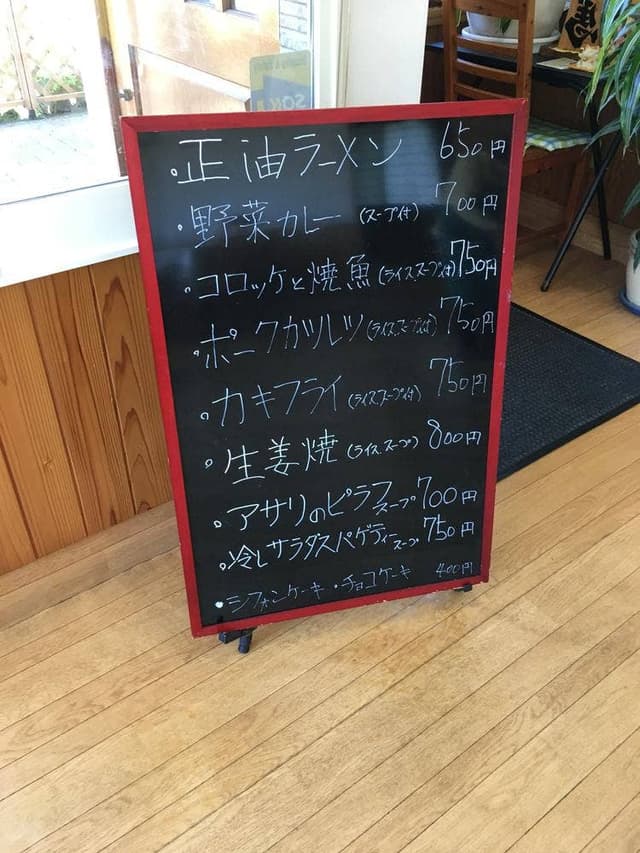 ・正油ラーメン 650円
・野菜カレー (スープ付) 700円
・コロッケと焼魚 (ライス、スープ付) 750円
・ポークカツレツ (ライス、スープ付) 750円
・カキフライ (ライス、スープ付) 750円
・生姜焼 (ライス、スープ) 800円
・アサリのピラフ スープ 700円
・冷しサラダスパゲティー スープ 750円
・シフォンケーキ・チョコケーキ 400円